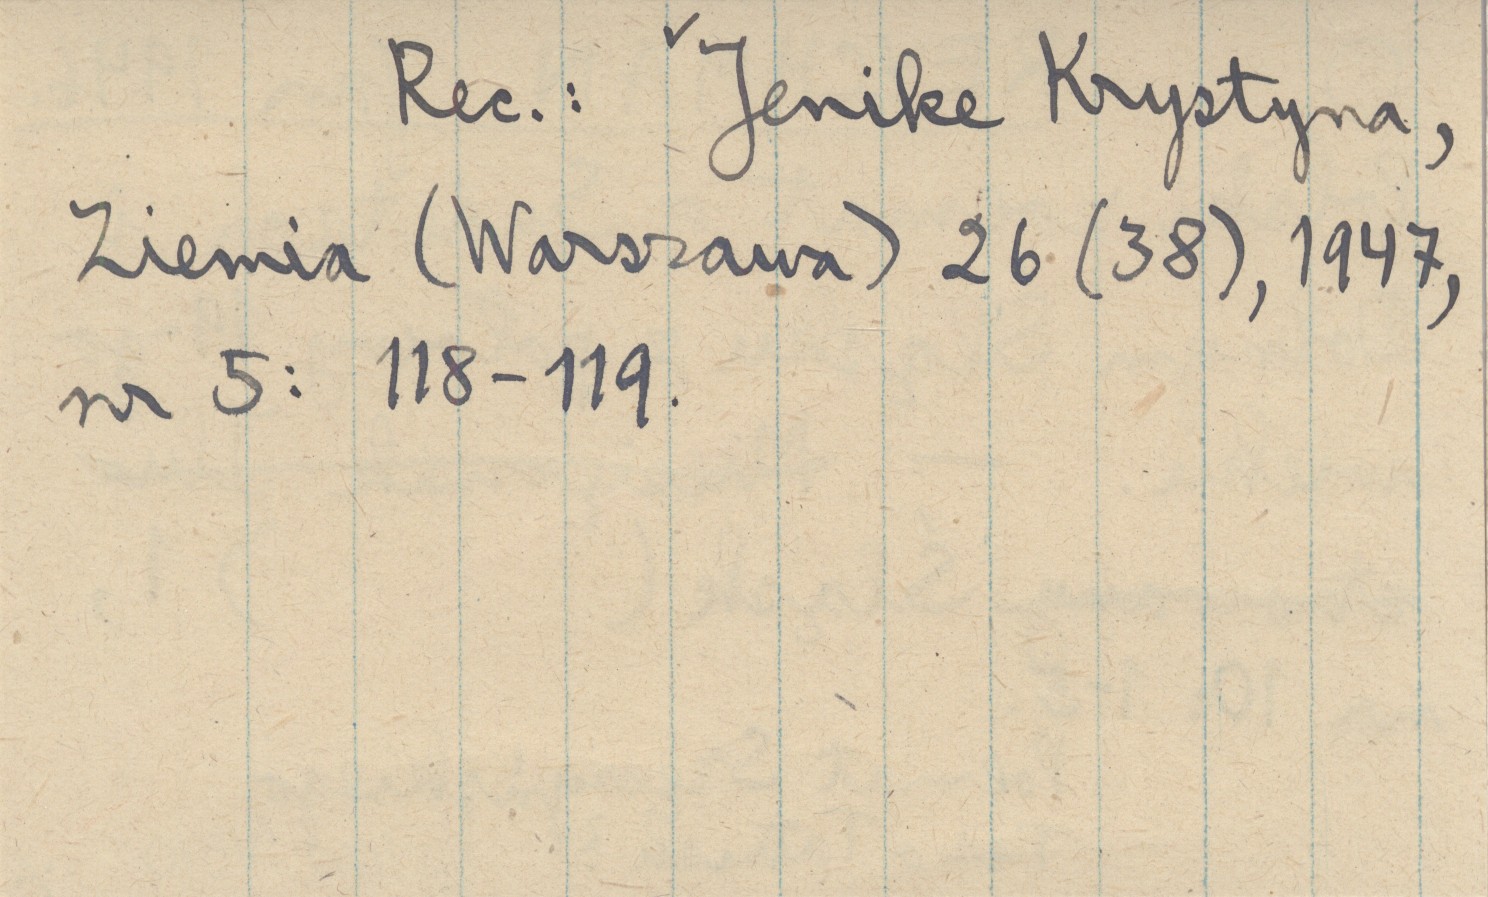 Rec.: ✓Jenike Krystyna,
Ziemia (Warszawa) 26 (38), 1947,
nr 5: 118-119.